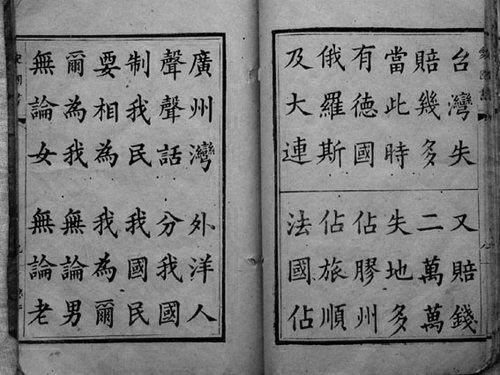 台灣失 又賠錢
賠幾多 二萬萬
當此時 失地多
有德國 佔膠州
俄羅斯 佔旅順
及大連 法國佔
廣州灣 外洋人
聲聲話 分我國
制我民 我國民
要相為 我為爾
爾為我 無論男
無論女 無論老